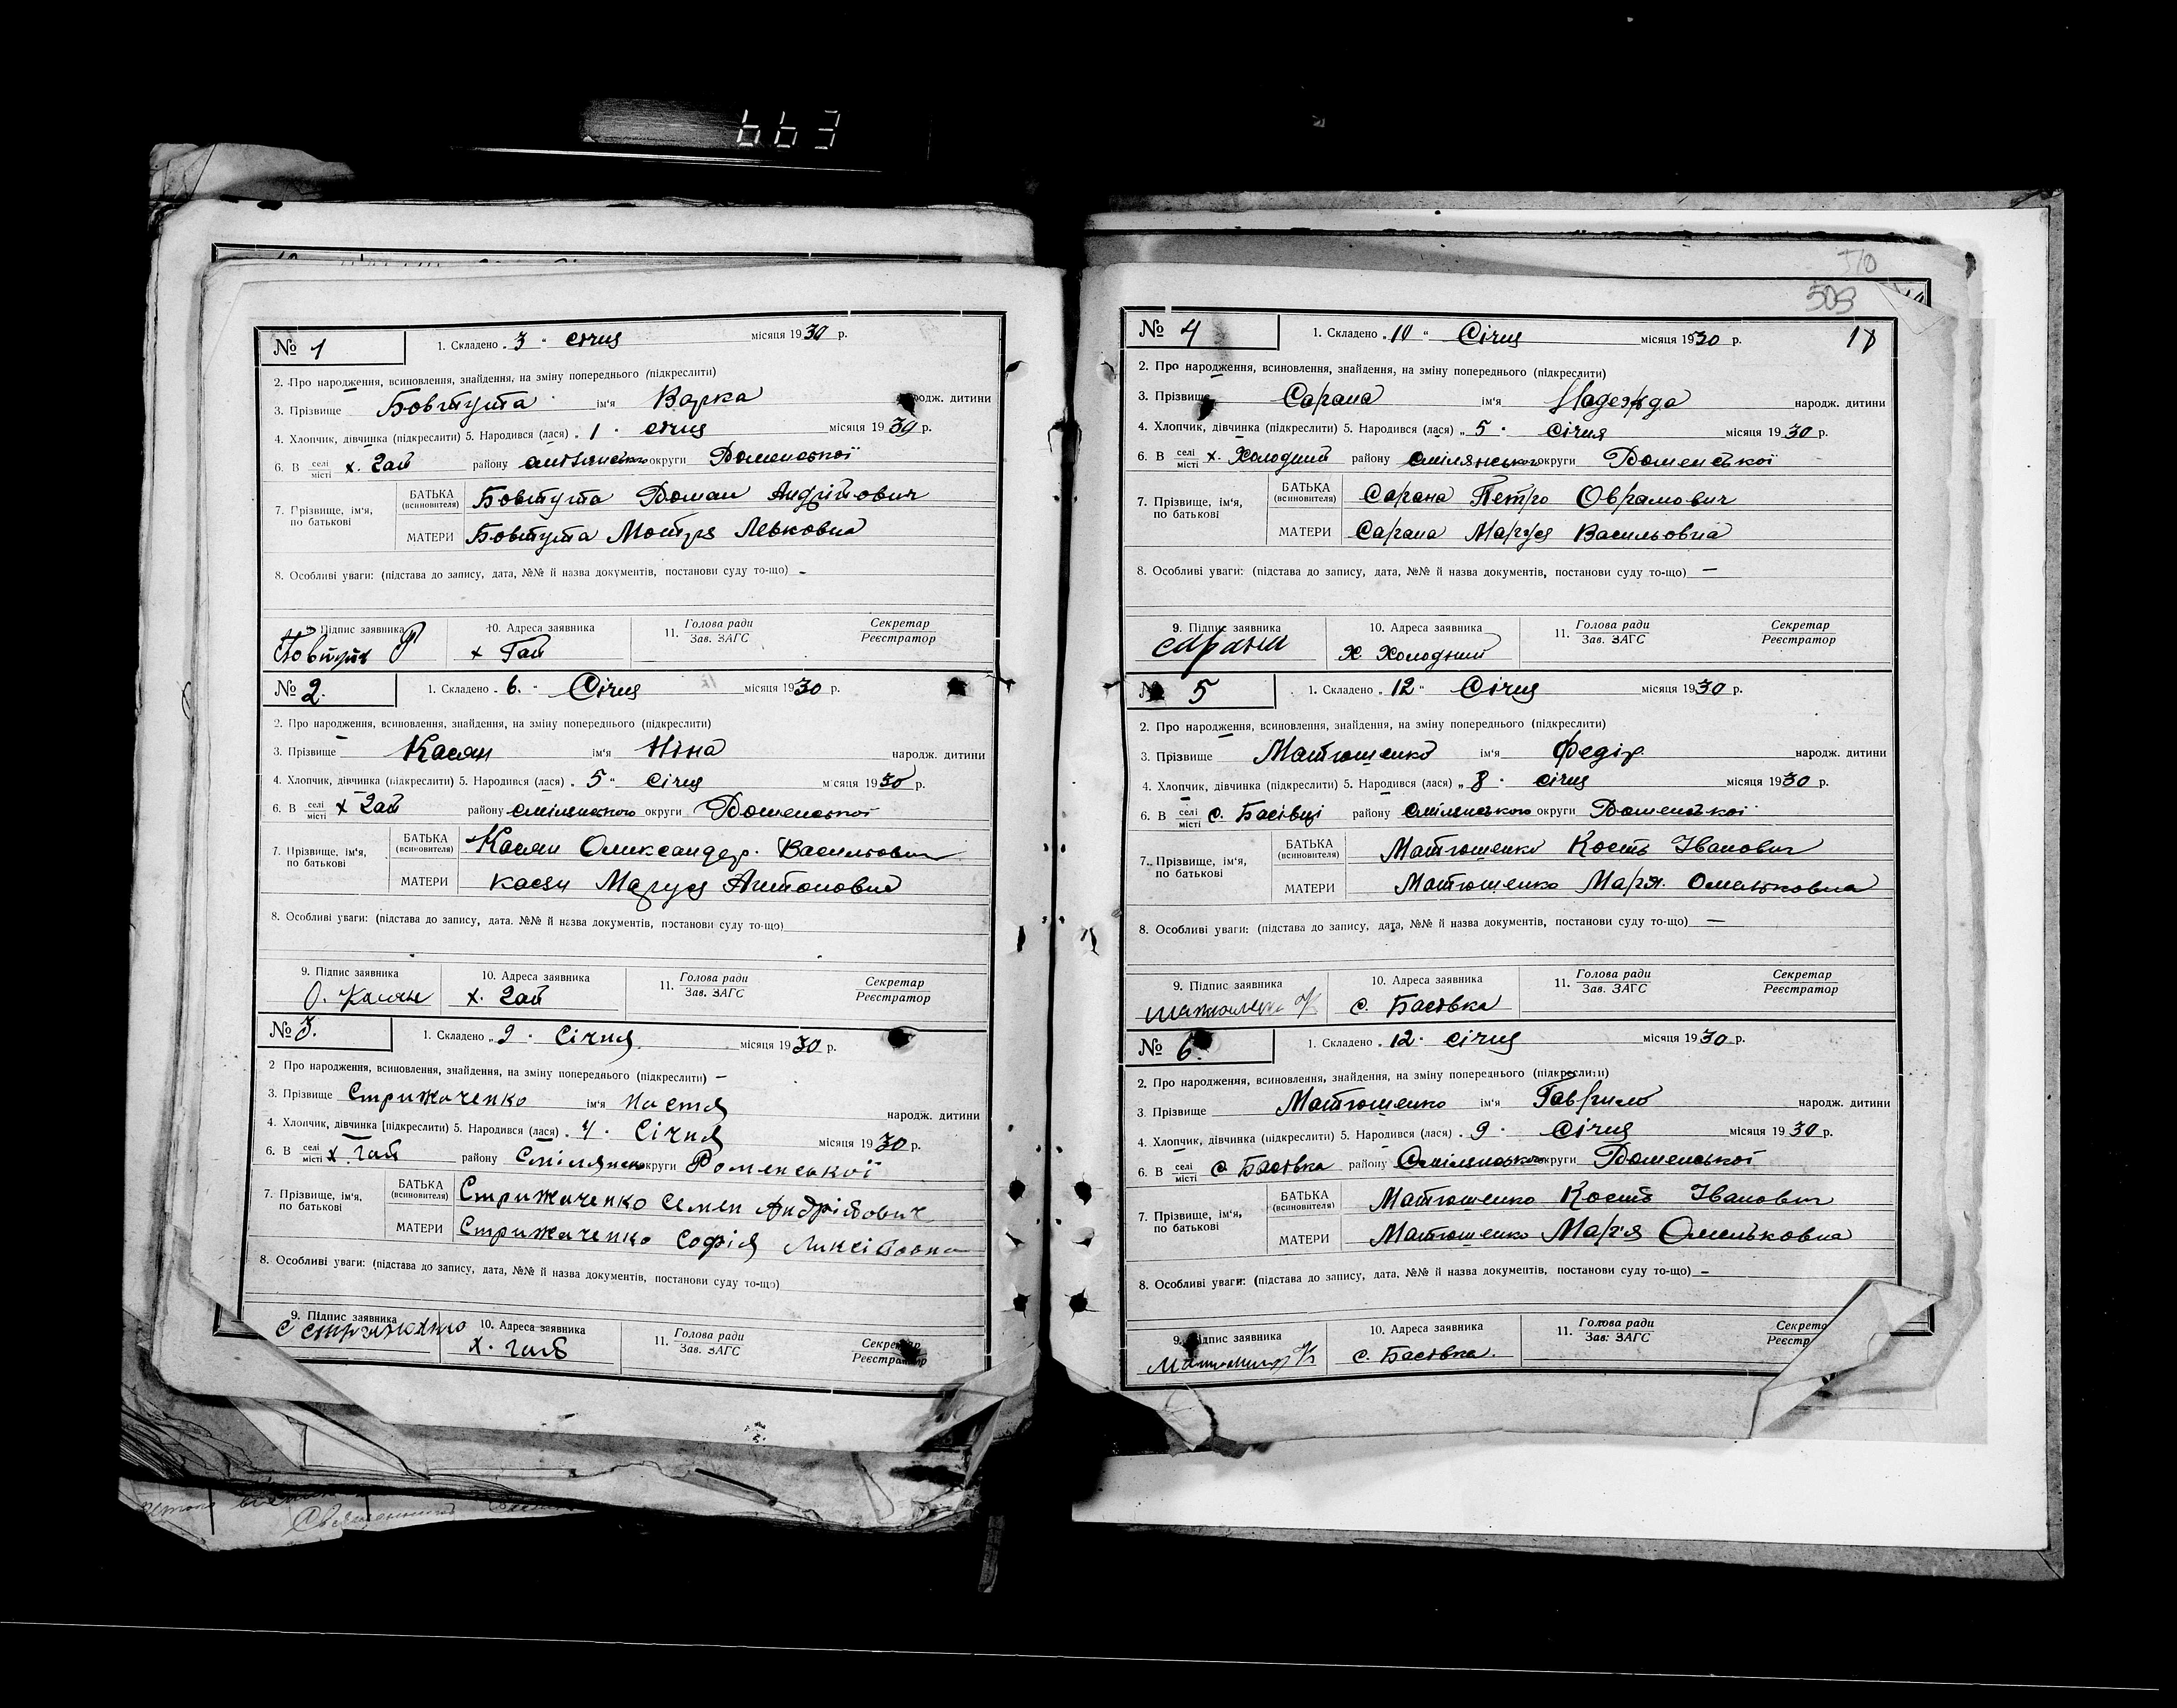 663
№ 1
1. Складено „ 3 " січня місяця 1930 р.
2. Про народження, всиновлення, знайдення, на зміну попереднього (підкреслити)
3. Прізвище Бовтута ім'я Варка народж. дитини
4. Хлопчик, дівчинка (підкреслити) 5. Народився (лася) „ 1 " січня місяця 1930 р.
6. В селі місті х. Гай району смілянського округи Роменської
7. Прізвище, ім'я, по батькові
БАТЬКА (всиновителя) Бовтута Роман Андрійович
МАТЕРИ Бовтута Мотря Левковна
8. Особливі уваги: (підстава до запису, дата, №№ й назва документів, постанови суду то-що) –
9. Підпис заявника 10. Адреса заявника 11. Голова ради Зав. ЗАГС Секретар Реєстратор
х Гай
№ 2.
1. Складено „ 6. " Січня місяця 1930 р.
2. Про народження, всиновлення, знайдення, на зміну попереднього (підкреслити)
3. Прізвище Касян ім'я Ніна народж. дитини
4. Хлопчик, дівчинка (підкреслити) 5. Народився (лася) „ 5 " січня місяця 1930 р.
6. В селі місті х Гай району смілянського округи Роменської
7. Прізвище, ім'я, по батькові
БАТЬКА (всиновителя) Касян Олександер Васильович
МАТЕРИ Касян Маруся Антоновна
8. Особливі уваги: (підстава до запису, дата, №№ й назва документів, постанови суду то-що)
9. Підпис заявника 10. Адреса заявника 11. Голова ради Зав. ЗАГС Секретар Реєстратор
О. Касян х. Гай
№ 3.
1. Складено „ 9 " Січня місяця 1930 р.
2 Про народження, всиновлення, знайдення, на зміну попереднього (підкреслити) –
3. Прізвище Стрижаченко ім'я Настя народж. дитини
4. Хлопчик, дівчинка [підкреслити) 5. Народився (лася) „ 4 " Січня місяця 1930 р.
6. В селі місті х. гай району Смілянськ округи Роменської
7. Прізвище, ім'я, по батькові
БАТЬКА (всиновителя) Стрижаченко Семен Андрійович
МАТЕРИ Стрижаченко Софія
8. Особливі уваги: (підстава до запису, дата, №№ й назва документів, постанови суду то-що)
9. Підпис заявника 10. Адреса заявника 11. Голова ради Зав. ЗАГС Секретар Реєстратор
х. гай
510
503
№ 4
1. Складено „ 10 " Січня місяця 1930 р.
2. Про народження, всиновлення, знайдення, на зміну попереднього (підкреслити)
3. Прізвище Сарана ім'я Надежда народж. дитини
4. Хлопчик, дівчинка (підкреслити) 5. Народився (лася) „ 5 " січня місяця 1930 р.
6. В селі місті х. Холодний району смілянського округи Роменської
7. Прізвище, ім'я, по батькові
БАТЬКА (всиновителя) Сарана Петро Оврамович
МАТЕРИ Сарана Маруся Васильовна
8. Особливі уваги: (підстава до запису, дата, №№ й назва документів, постанови суду то-що) –
9. Підпис заявника 10. Адреса заявника 11. Голова ради Зав. ЗАГС Секретар Реєстратор
Х. Холодний
№ 5
1. Складено „ 12 " Січня місяця 1930 р.
2. Про народження, всиновлення, знайдення, на зміну попереднього (підкреслити)
3. Прізвище Матюшенко ім'я Федір народж. дитини
4. Хлопчик, дівчинка (підкреслити) 5. Народився (лася) „ 8 " січня місяця 1930 р.
6. В селі місті с. Басівці району смілянського округи Роменської
7. Прізвище, ім'я, по батькові
БАТЬКА (всиновителя) Матюшенко Кость Іванович
МАТЕРИ Матюшенко Мар'я Омельковна
8. Особливі уваги: (підстава до запису, дата, №№ й назва документів, постанови суду то-що) –
9. Підпис заявника 10. Адреса заявника 11. Голова ради Зав. ЗАГС Секретар Реєстратор
с. Басівка
№ 6.
1. Складено „ 12 " січня місяця 1930 р.
2. Про народження, всиновлення, знайдення, на зміну попереднього (підкреслити)
3. Прізвище Матюшенко ім'я Гаврило народж. дитини
4. Хлопчик, дівчинка (підкреслити) 5. Народився (лася) „ 9 " Січня місяця 1930 р.
6. В селі місті с Басівка району Смілянського округи Роменської
7. Прізвище, ім'я, по батькові
БАТЬКА (всиновителя) Матюшенко Кость Іванович
МАТЕРИ Матюшенко Мар'я Омельковна
8. Особливі уваги: (підстава до запису, дата, №№ й назва документів, постанови суду то-що) –
9. Підпис заявника 10. Адреса заявника 11. Голова ради Зав: ЗАГС
с. Басівка.